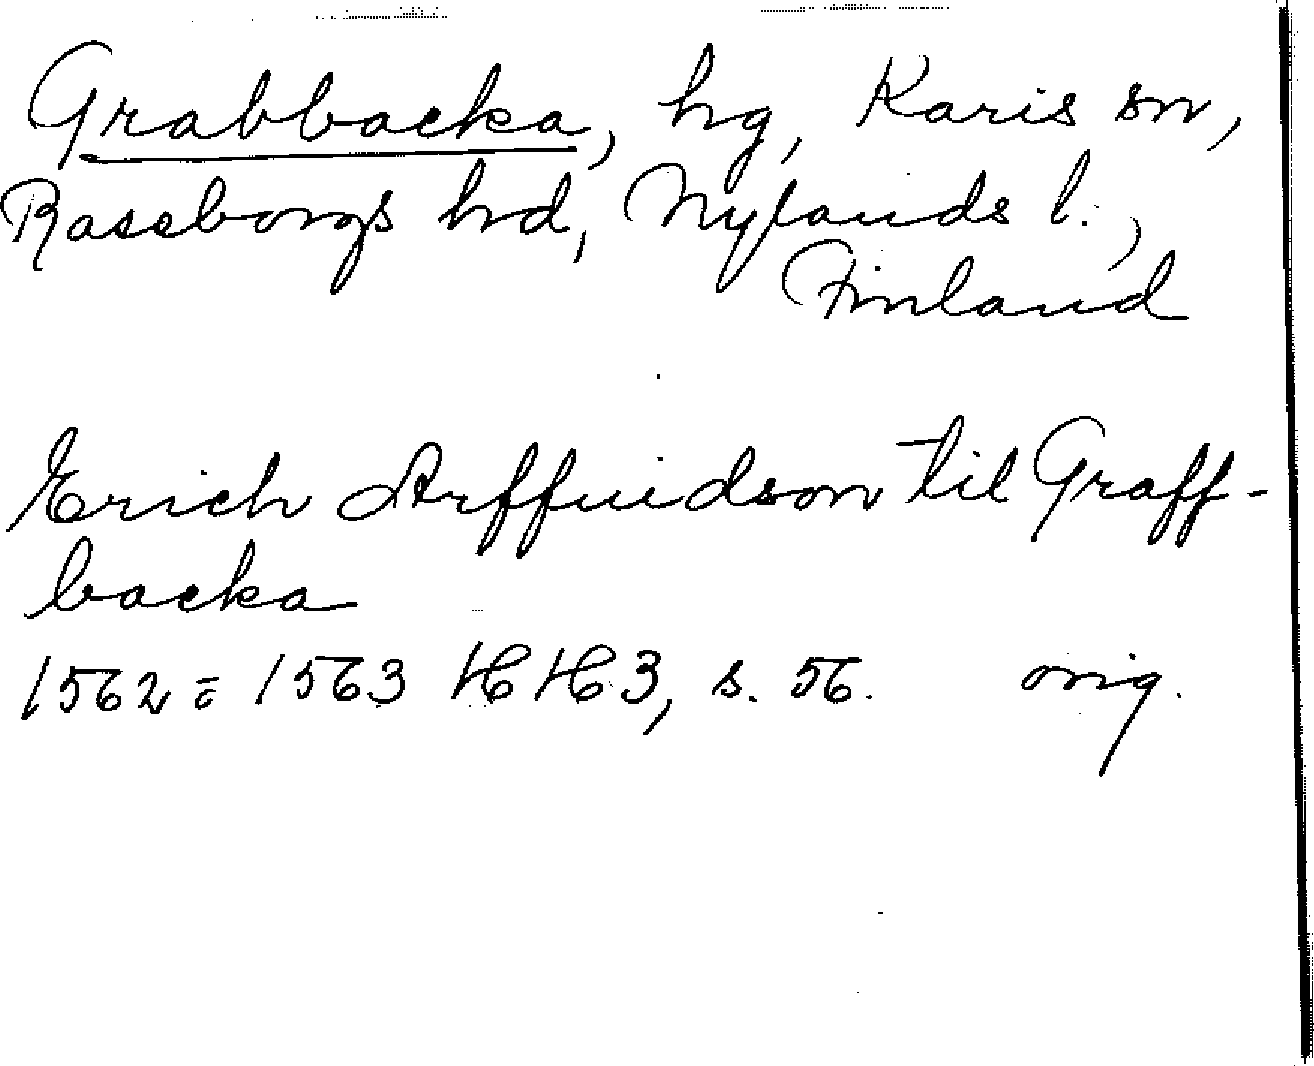 Grabbacka, hg, Karis sn,
Raseborgs hd, Nylands l.,
Finland
Erich Arffuidson til Graff-
backa
1562 = 1563 HH 3, s. 56. orig.